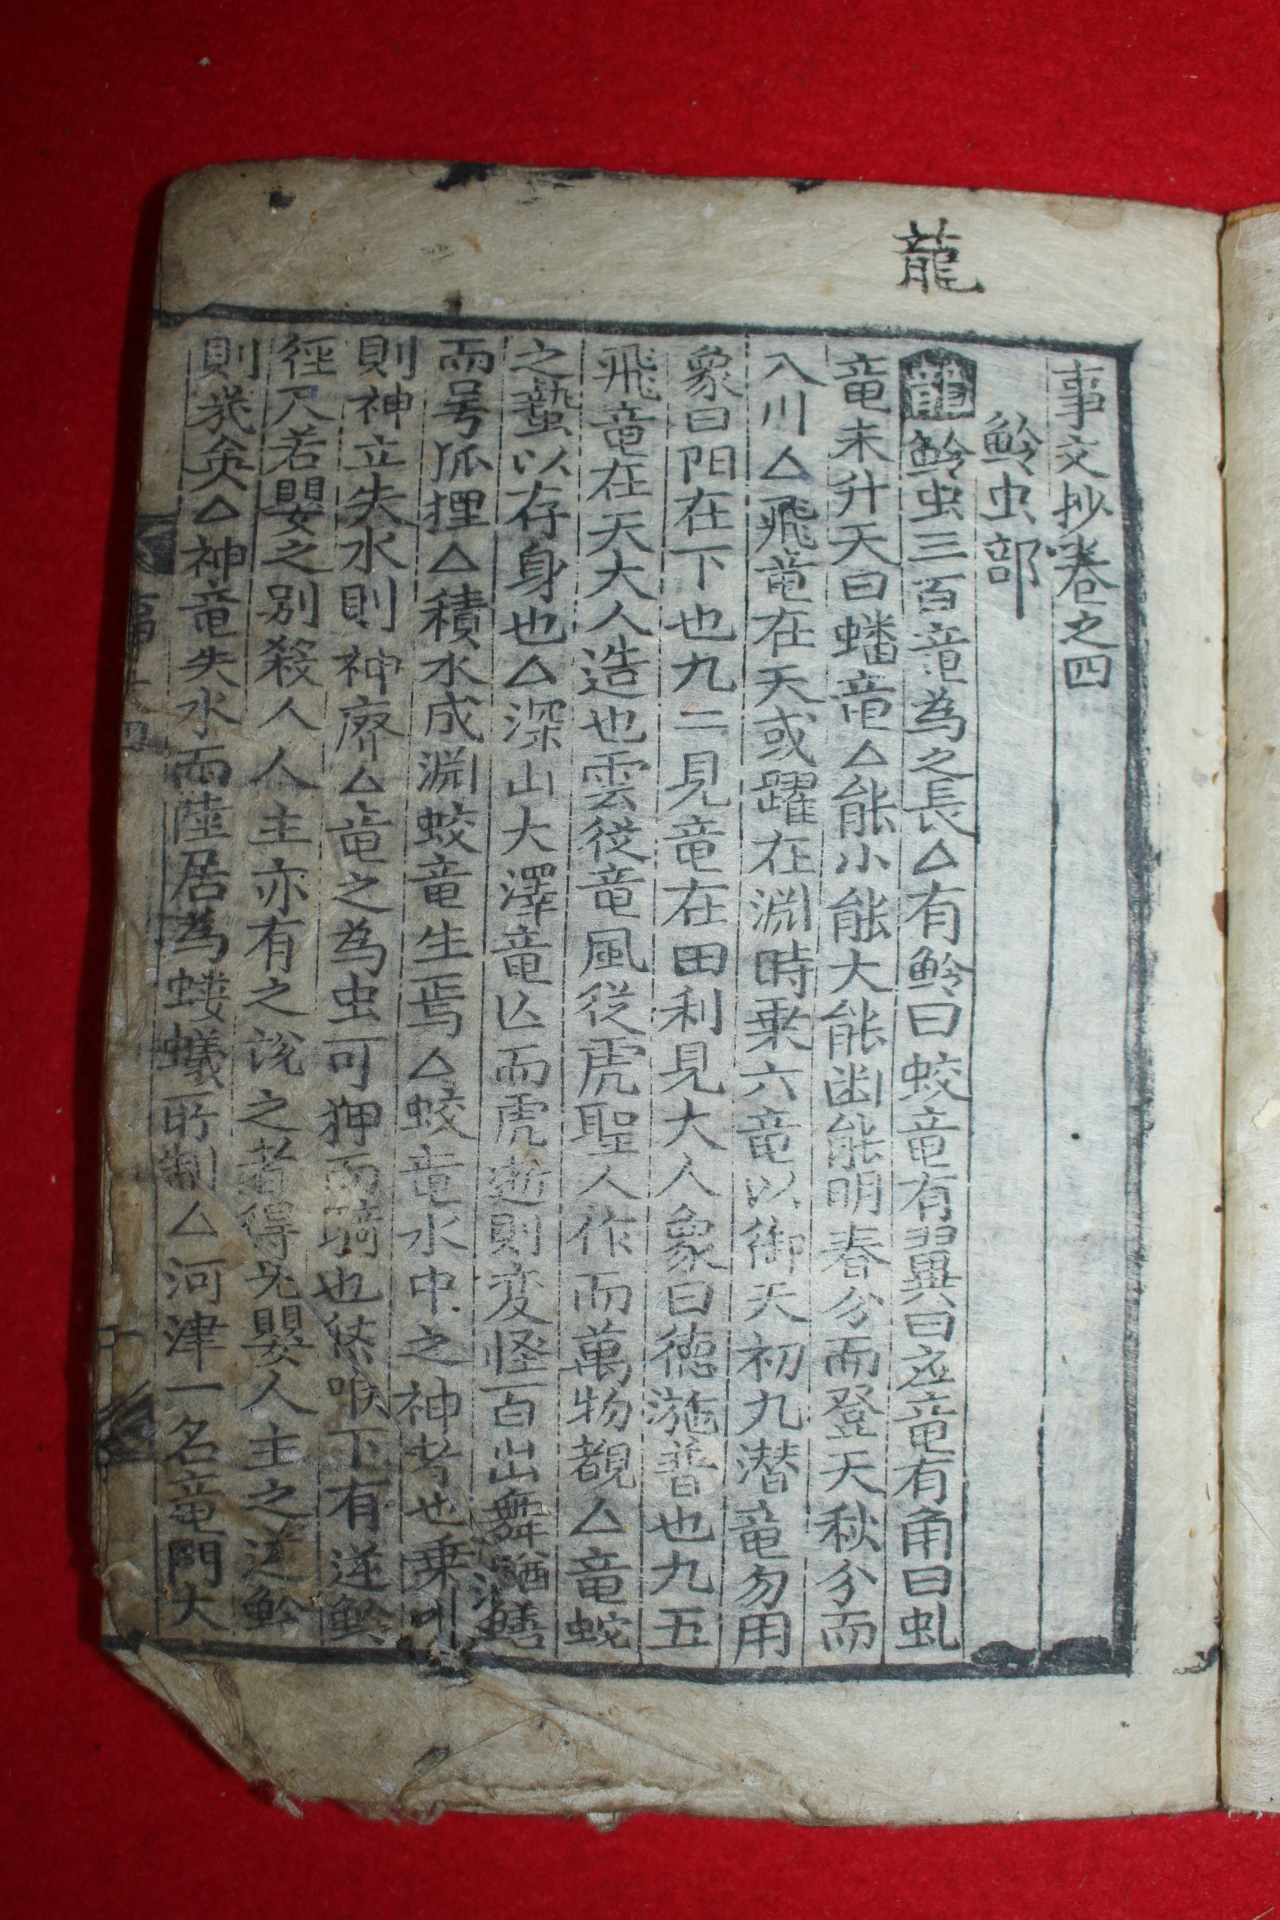 龍
事文抄卷之四
鱗虫部
龍鱗虫三百竜為之長△有鱗曰蛟竜有翼曰应竜有角曰虬
竜未升天曰蟠竜△能小能大能幽能明春分而登天秋分而
入川△飛竜在天或躍在淵時乗六竜以御天初九潜竜勿用
象曰阳在下也九二見竜在田利見大人象曰德施普也九五
飛竜在天大人造也雲從竜風從虎聖人作而萬物覩△竜蛇
之蟄以存身也△深山大澤竜亾而虎逝則変怪百出舞鰌鱔
而号狐狸△積水成淵蛟竜生焉△蛟竜水中之神者也乗水
則神立失水則神廃△竜之為虫可狎而騎也然喉下有逆鱗
徑尺若嬰之則殺人人主亦有之說之者得无嬰人主之逆鱗
則㡬矣△神竜失水而陸居為螻蟻所制△河津一名竜門大